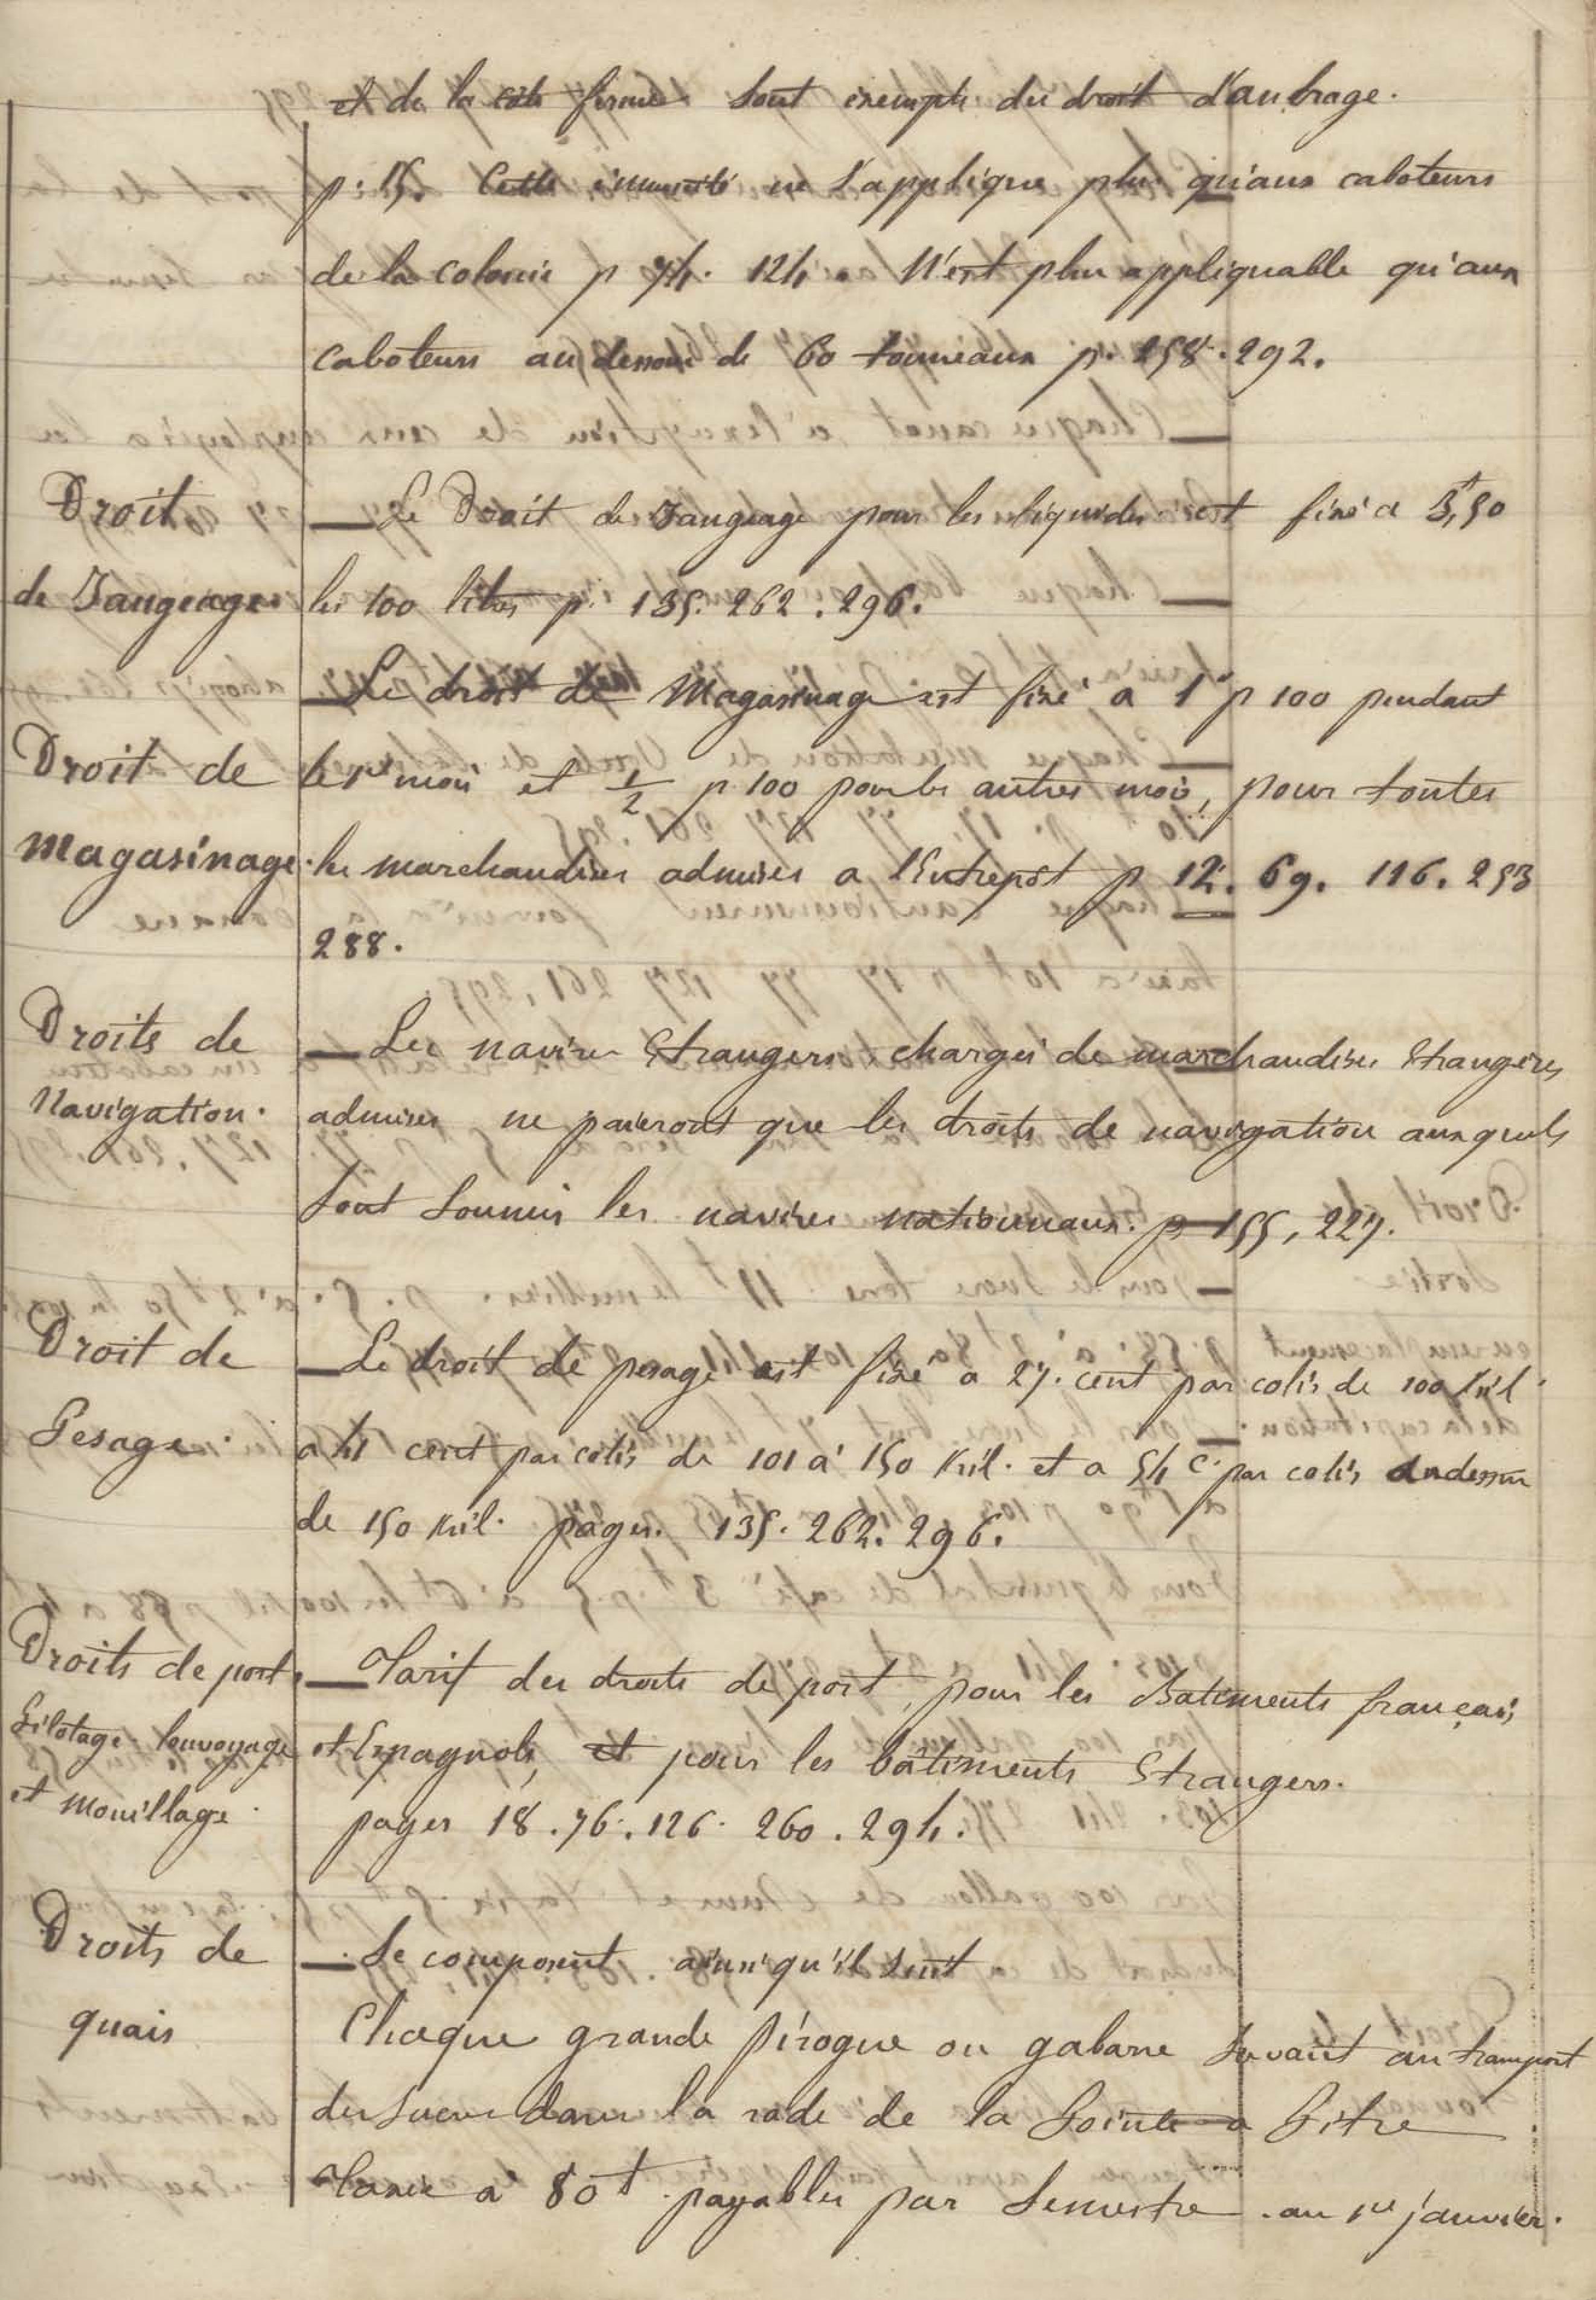 et de la côte ferme sont exempts du droit d'ancrage.
p. 15. Cette immunité ne s'applique plus qu'aux caboteurs
de la colonie p 74. 124. N'est plus appliquable qu'aux
caboteurs au dessous de 60 tonneaux p. 258. 292.
Droit
de Jaugeage
— Le Droit de Jaugeage pour les liquides est fixé a
les 100 litres p. 135. 262. 296.
Droit de
Magasinage.
— Le droit de Magasinage est fixé a 1 p 100 pendant
le 1er mois et 1/2 p. 100 pour les autres mois, pour toutes
les marchandises admises a l'Entrepôt p 12. 69. 116. 253
288.
Droits de
Navigation.
— Les navires Etrangers chargés de marchandises Etrangères
admises ne paieront que les droits de navigation auxquels
sont soumis les navires nationnaux. p 155, 227.
Droit de
Pesage.
— Le droit de pesage est fixé a 27. cent par colis de 100 kil.
a 41 cent par colis de 101 à 150 kil. et a 54 c. par colis audessus
de 150 kil. pages. 135. 262. 296.
Droits de port
Pilotage. louvoyage
et mouillage.
— Tarif des droits de port, pour les Batiments français
et Espagnols, et pour les bâtiments Etrangers.
pages 18. 76. 126. 260. 294.
Droits de
quais
— Se composent ainsi qu'il suit
Chaque grande pirogue ou gabare servant au transport
des sucres dans la rade de la Pointe a Pitre
Taxée a 80f payables par Semestre au 1er janvier.